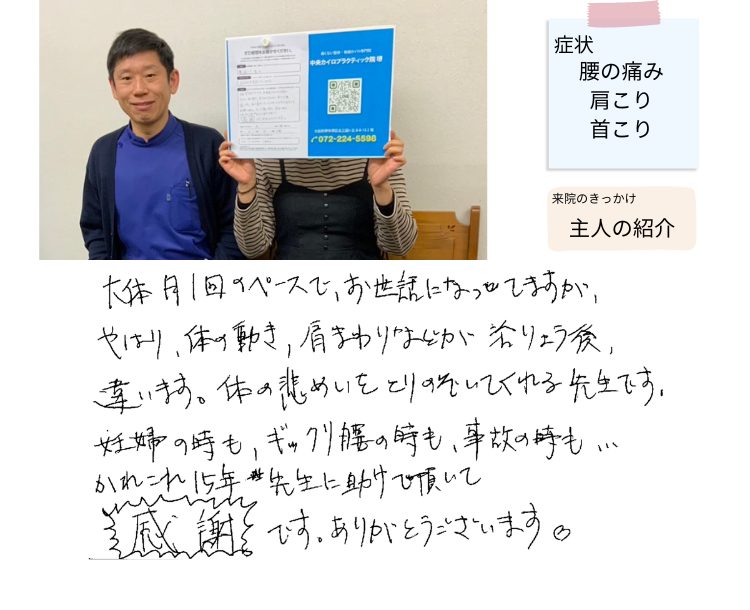 中央カイロプラクティック院 堺
072-224-5598
症状
腰の痛み
肩こり
首こり
来院のきっかけ
主人の紹介
大体月1回のペースで、お世話になってますが、
やはり、体の動き、肩まわりなどが 治りょう後、
違います。体の悲めいをとりのぞいてくれる先生です。
妊婦の時も、ギックリ腰の時も、事故の時も…
かれこれ15年 先生に助けて頂いて
感謝です。ありがとうございます。